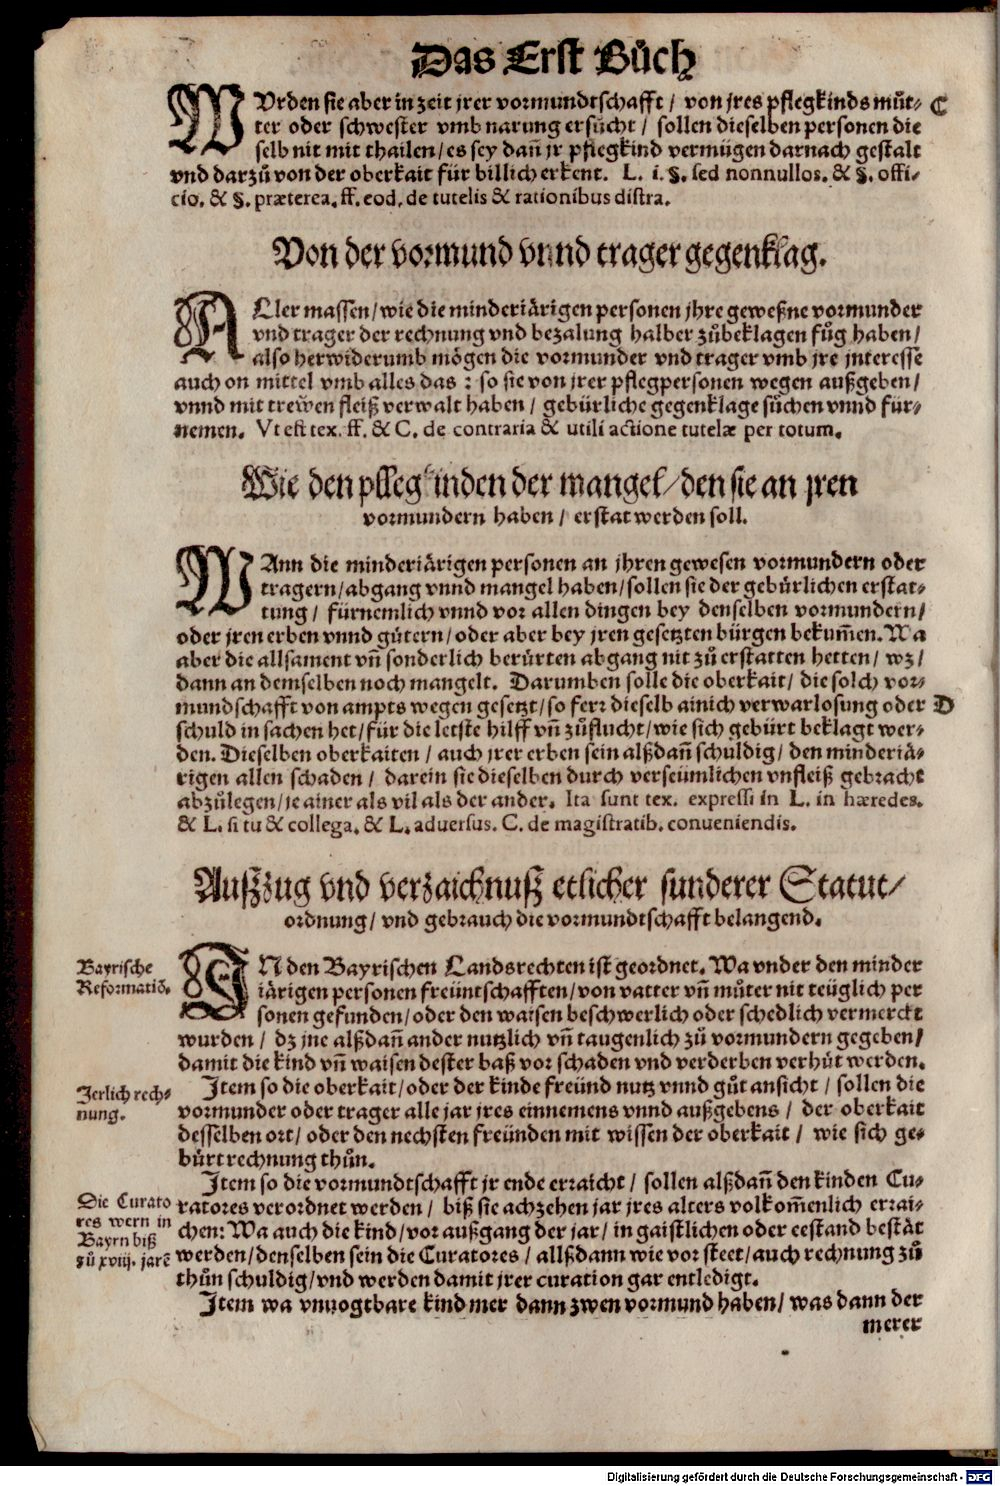 Das Erst Bůch
WUrden sie aber in zeit jrer vormundtschafft / von jres pflegkinds můt⸗ C
ter oder schwester vmb narung ersůcht / sollen dieselben personen die
selb nit mit thailen / es sey dañ jr pflegkind vermügen darnach gestalt
vnd darzů von der oberkait für billich erkent. L. i. §. sed nonnullos. & §. offi-
cio. & §. præterea. ff. eod. de tutelis & rationibus distra.
Von der vormund vnnd trager gegenklag.
ALler massen / wie die minderjärigen personen jhre geweßne vormunder
vnd trager der rechnung vnd bezalung halber zůbeklagen fůg haben /
also herwiderumb mögen die vormunder vnd trager vmb jre jnteresse
auch on mittel vmb alles das : so sie von jrer pflegpersonen wegen außgeben /
vnnd mit trewen fleiß verwalt haben / gebürliche gegenklage sůchen vnnd für⸗
nemen. Vt est tex. ff. & C. de contraria & utili actione tutelæ per totum.
Wie den pflegkinden der mangel / den sie an jren
vormundern haben / erstat werden soll.
WAnn die minderjärigen personen an jhren gewesen vormundern oder
tragern / abgang vnnd mangel haben / sollen sie der gebürlichen erstat⸗
tung / fürnemlich vnnd vor allen dingen bey denselben vormundern /
oder jren erben vnnd gütern / oder aber bey jren gesetzten bürgen bekum̃en. Wa
aber die allsament vñ sonderlich berürten abgang nit zů erstatten hetten / wz /
dann an demselben noch mangelt. Darumben solle die oberkait / die solch vor⸗
mundschafft von ampts wegen gesetzt / so ferꝛ dieselb ainich verwarlosung oder D
schuld in sachen het / für die letste hilff vñ zůflucht / wie sich gebürt beklagt wer⸗
den. Dieselben oberkaiten / auch jrer erben sein alßdañ schuldig / den minderjä⸗
rigen allen schaden / darein sie dieselben durch verseümlichen vnfleiß gebracht
abzůlegen / je ainer als vil als der ander. Ita sunt tex. expressi in L. in hæredes.
& L. si tu & collega. & L. adversus. C. de magistratib. conveniendis.
Außzug vnd verzaichnuß etlicher sunderer Statut /
ordnung / vnd gebrauch die vormundtschafft belangend.
Bayrische
Reformatiõ.
IN den Bayrischen Landsrechten ist geordnet. Wa vnder den minder
järigen personen freüntschafften / von vatter vñ můter nit teüglich per
sonen gefunden / oder den waisen beschwerlich oder schedlich vermerckt
wurden / dz jne alßdañ ander nutzlich vñ taugenlich zů vormundern gegeben /
damit die kind vñ waisen dester baß vor schaden vnd verderben verhüt werden.
Jerlich rech⸗
nung.
Item so die oberkait / oder der kinde freünd nutz vnnd gůt ansicht / sollen die
vormunder oder trager alle jar jres einnemens vnnd außgebens / der oberkait
desselben ort / oder den nechsten freünden mit wissen der oberkait / wie sich ge⸗
bürt rechnung thůn.
Die Curato
res wern in
Bayrn biß
zů xviij. jarẽ
Item so die vormundtschafft jr ende erraicht / sollen alßdañ den kinden Cu⸗
ratores verordnet werden / biß sie achzehen jar jres alters volkom̃enlich errai⸗
chen: Wa auch die kind / vor außgang der jar / in gaistlichen oder eestand bestät
werden / denselben sein die Curatores / allßdann wie vor steet / auch rechnung zů
thůn schuldig / vnd werden damit jrer curation gar entledigt.
Item wa vnuogtbare kind mer dann zwen vormund haben / was dann der
merer
Digitalisierung gefördert durch die Deutsche Forschungsgemeinschaft - DFG